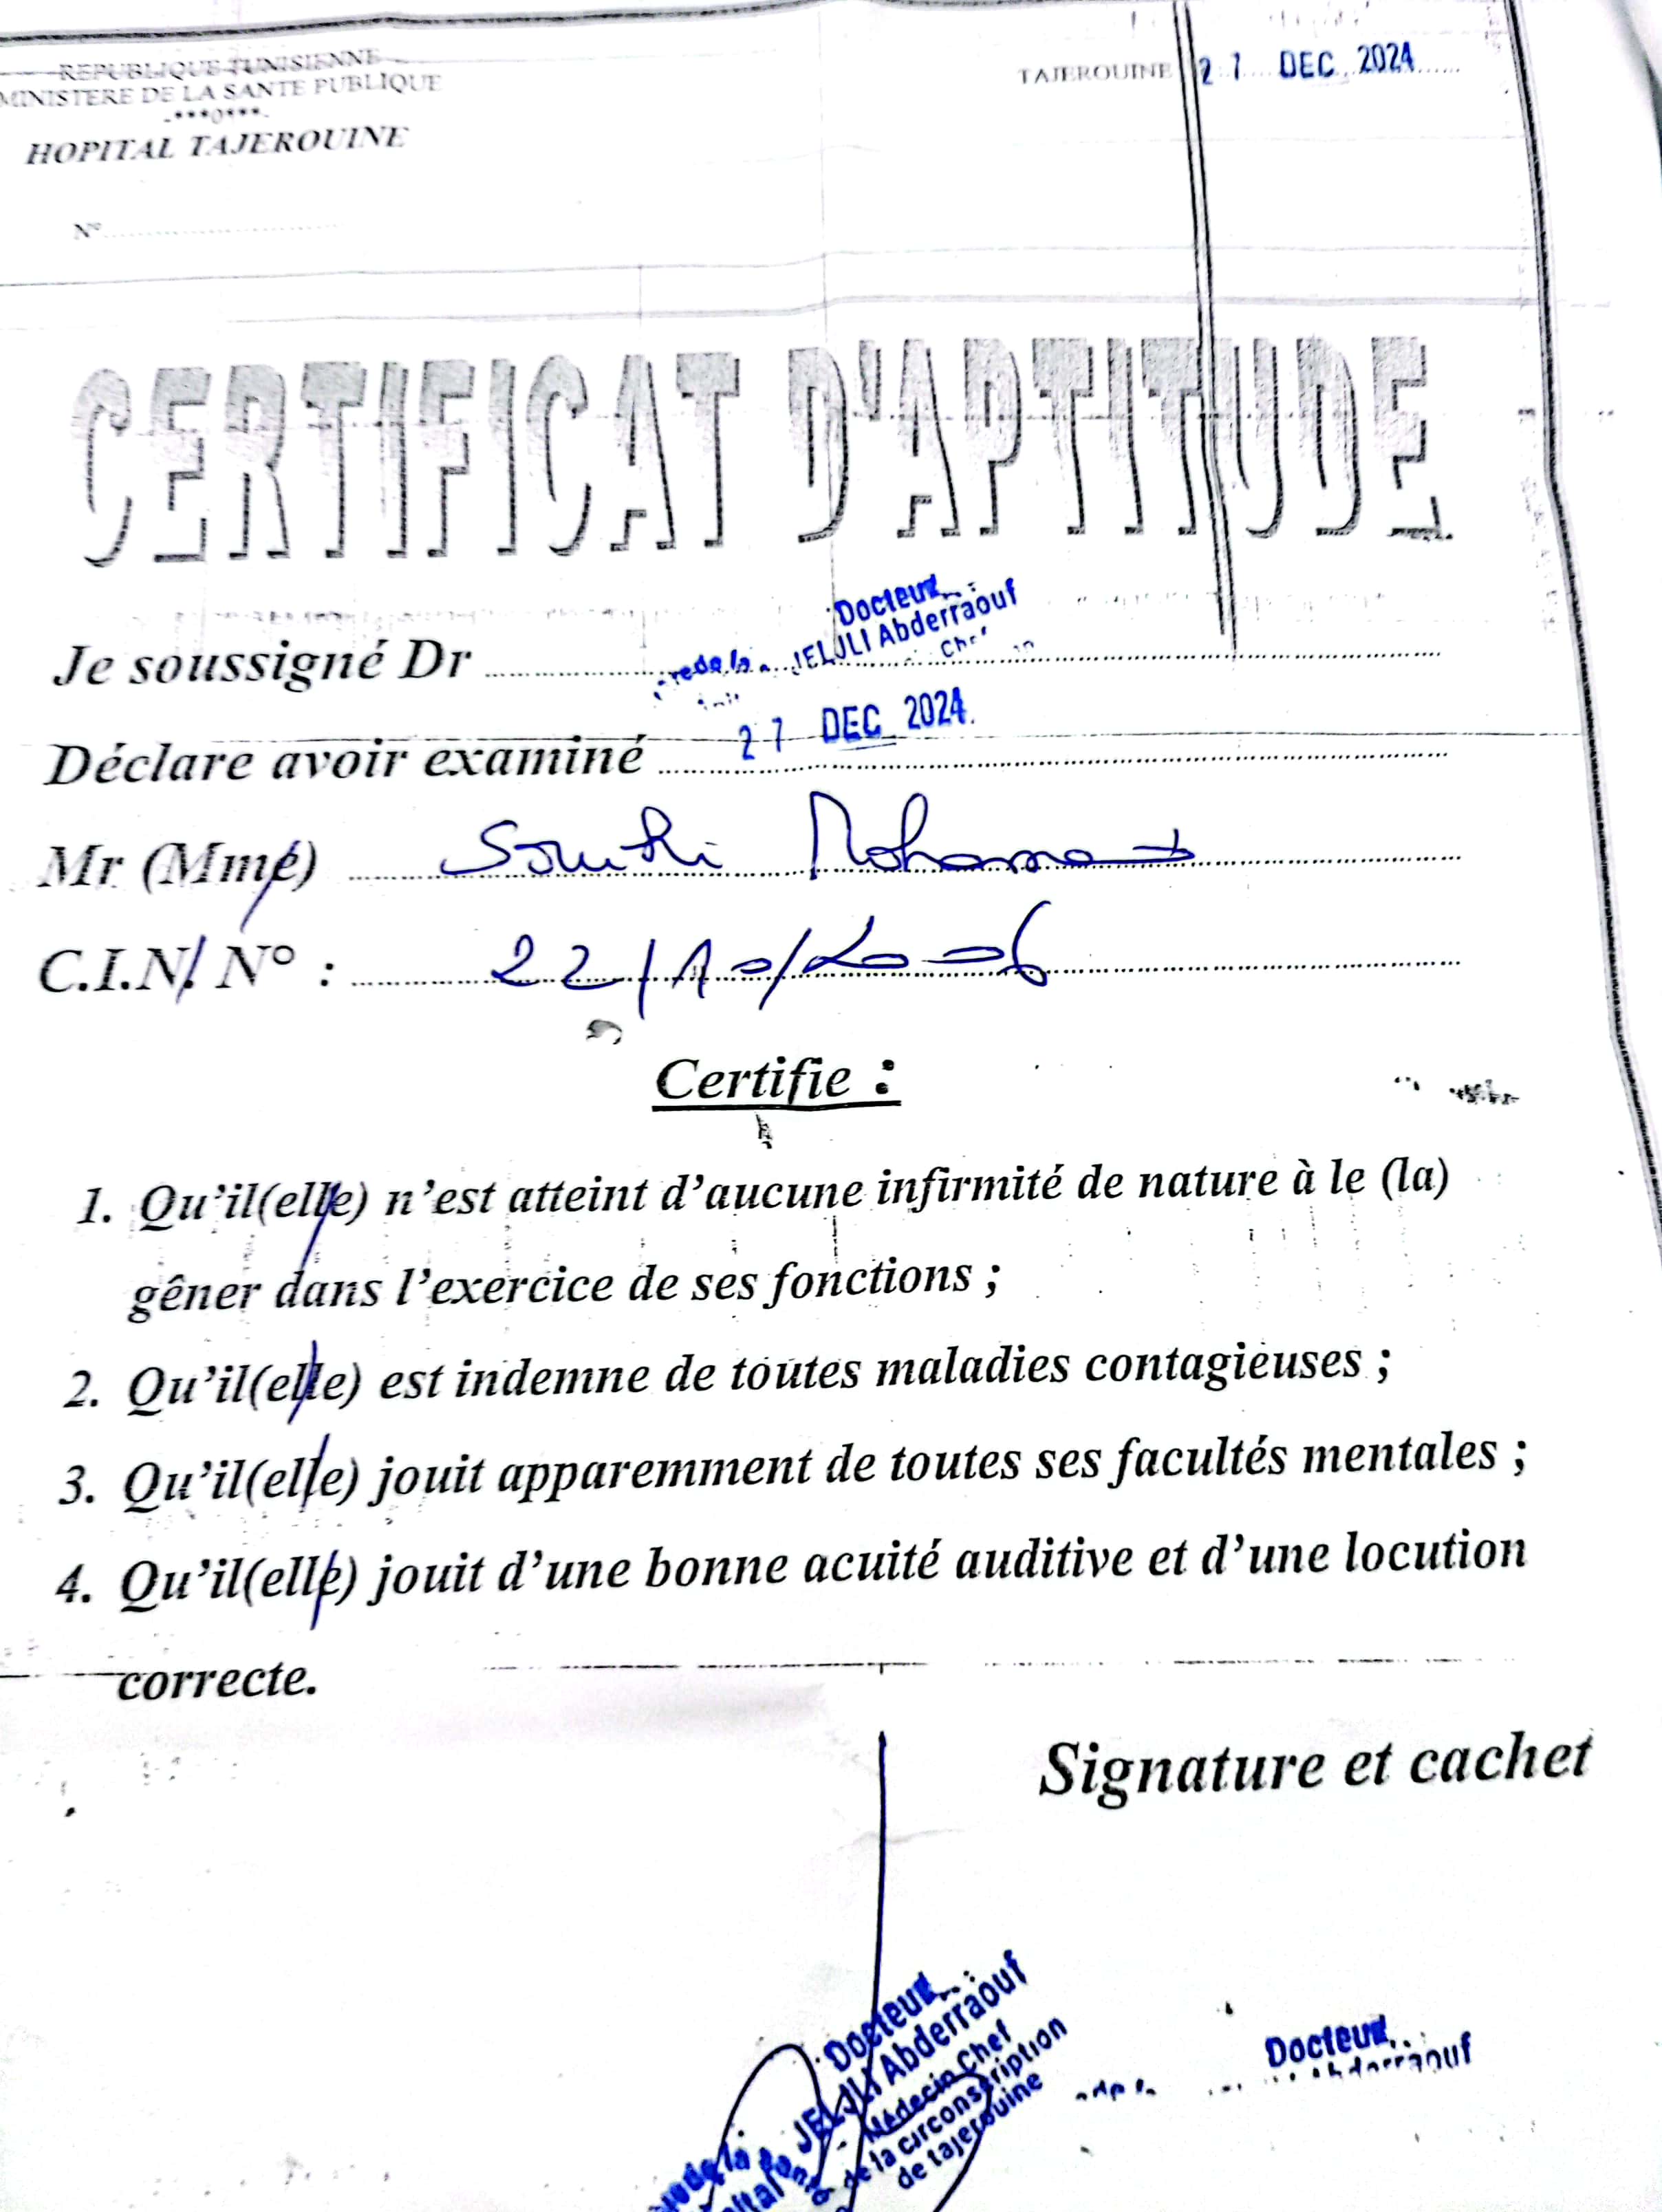 REPUBLIQUE TUNISIENNE
MINISTERE DE LA SANTE PUBLIQUE
-***0***-
HOPITAL TAJEROUINE
TAJEROUINE 27 DEC 2024
N°
CERTIFICAT D'APTITUDE
Docteur
Je soussigné Dr JELJLI Abderraouf
Déclare avoir examiné 27 DEC 2024
Mr (Mme) Mohamed
C.I.N. N° : 22/10/2006
Certifie :
1. Qu'il(elle) n'est atteint d'aucune infirmité de nature à le (la)
gêner dans l'exercice de ses fonctions ;
2. Qu'il(elle) est indemne de toutes maladies contagieuses ;
3. Qu'il(elle) jouit apparemment de toutes ses facultés mentales ;
4. Qu'il(elle) jouit d'une bonne acuité auditive et d'une locution
correcte.
Signature et cachet
Docteur
JELJLI Abderraouf
Médecin Chef
de la circonscription
de tajerouine
Docteur
Abderraouf